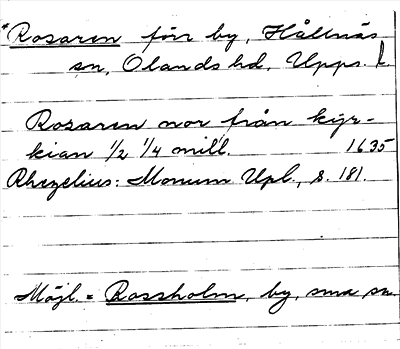 *Rosaren förr by, Hållnäs
sn, Olands hd, Upps. l.
Rosaren nor från kyr-
kian 1/2 1/4 mill. 1635
Rhezelius: Monum Upl., s. 181.
Möjl. = Rossholm, by, sma sn.